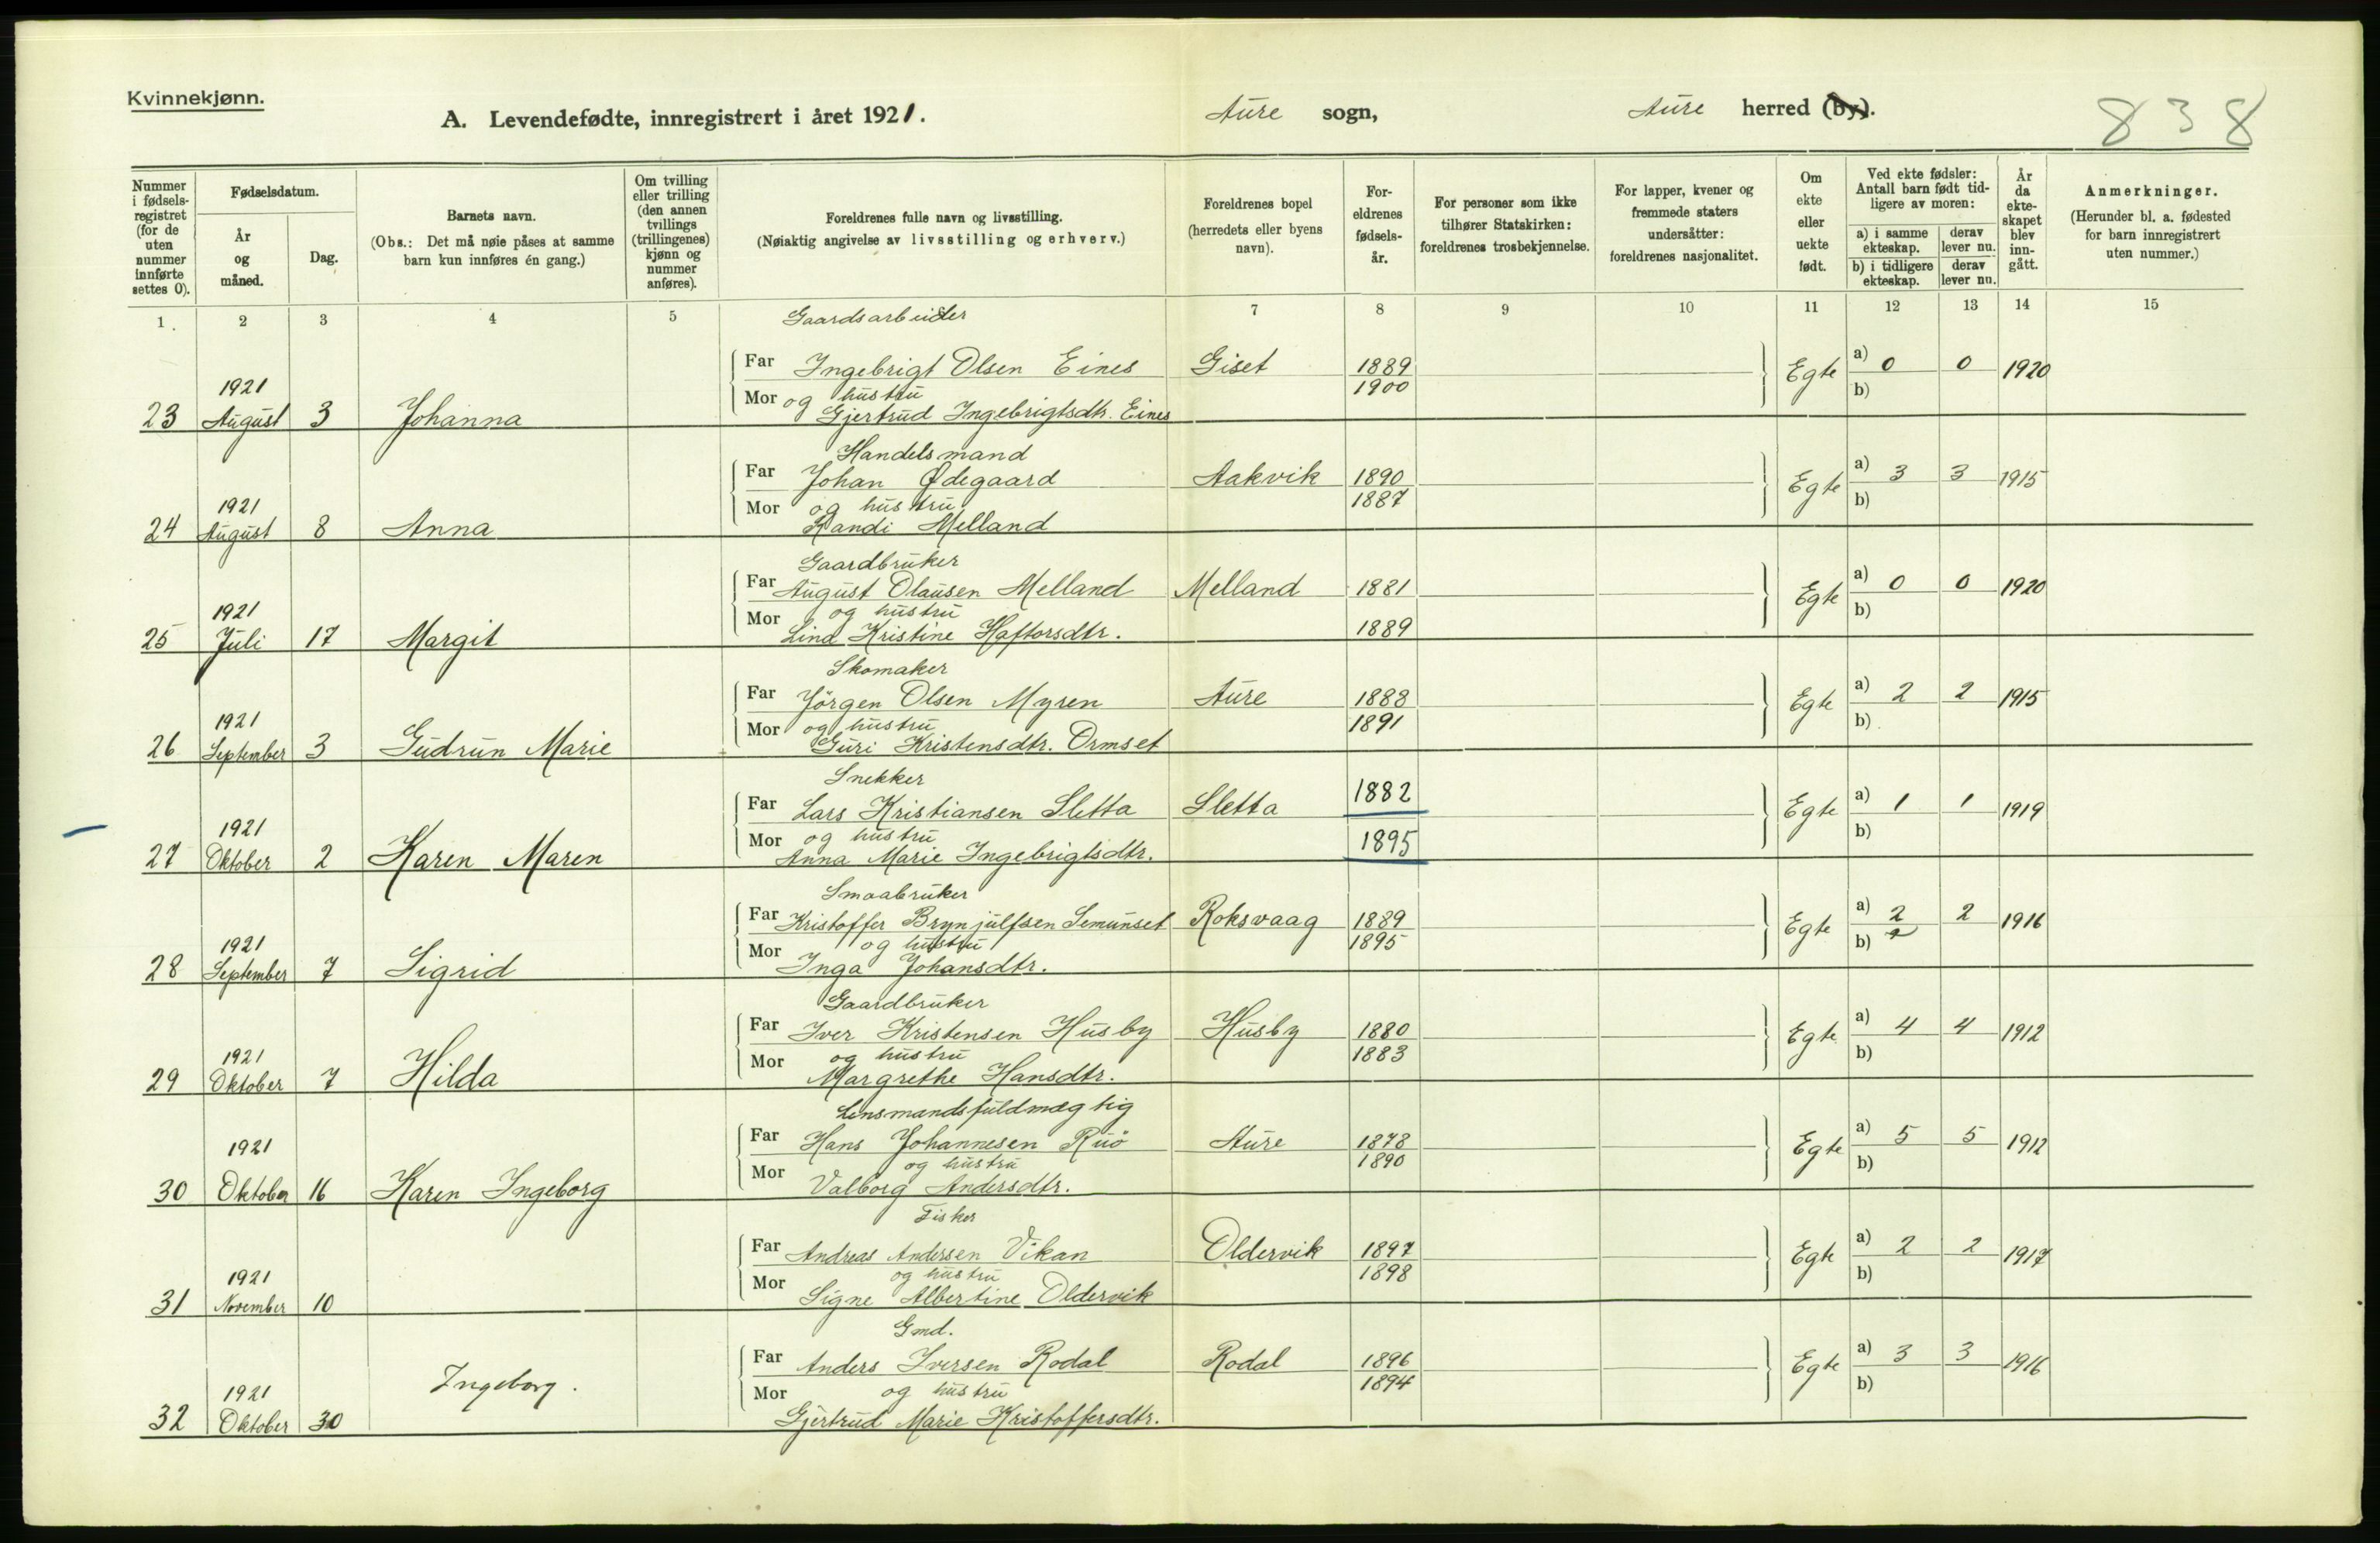 Kvinnekjønn.
A. Levendefødte, innregistrert i året 1921.
Aure sogn,
Aure herred (by).
838
Nummer i fødselsregistret (for de uten nummer innførte settes 0).
Fødselsdatum.
År og måned.
Dag.
Barnets navn.
(Obs.: Det må nøie påses at samme barn kun innføres én gang.)
Om tvilling eller trilling (den annen tvillings (trillingenes) kjønn og nummer anføres).
Foreldrenes fulle navn og livsstilling.
(Nøiaktig angivelse av livsstilling og erhverv.)
Foreldrenes bopel (herredets eller byens navn).
Foreldrenes fødselsår.
For personer som ikke tilhører Statskirken: foreldrenes trosbekjennelse.
For lapper, kvener og fremmede staters undersåtter: foreldrenes nasjonalitet.
Om ekte eller uekte født.
Ved ekte fødsler: Antall barn født tidligere av moren:
a) i samme ekteskap. derav lever nu.
b) i tidligere ekteskap. derav lever nu.
År da ekteskapet blev inngått.
Anmerkninger.
(Herunder bl. a. fødested for barn innregistrert uten nummer.)
1. 2 3 4 5 7 8 9 10 11 12 13 14 15
Gaardsarbeider
Far Ingebrigt Olsen Eines Giset 1889 Egte a) 0 0 1920
1921
Mor og hustru 1900 b)
23 August 3 Johanna Gjertrud Ingebrigtsdtr. Eines
Handelsmand
Far Johan Ødegaard Aakvik 1890 Egte a) 3 3 1915
1921
Mor og hustru 1887 b)
24 August 8 Anna Randi Melland
Gaardbruker
Far August Olausen Melland Melland 1881 Egte a) 0 0 1920
1921
Mor og hustru 1889 b)
25 Juli 17 Margit Lina Kristine Haftorsdtr.
Skomaker
Far Jörgen Olsen Myren Aure 1888 Egte a) 2 2 1915
1921
Mor og hustru 1891 b)
26 September 3 Gudrun Marie Guri Kristensdtr. Ormset
Snekker
Far Lars Kristiansen Sletta Sletta 1882 Egte a) 1 1 1919
1921
Mor og hustru 1895 b)
27 Oktober 2 Karen Maren Anna Marie Ingebrigtsdtr.
Smaabruker
Far Kristoffer Brynjulfsen Semunset Roksvaag 1889 Egte a) 2 2 1916
1921
Mor og hustru 1895 b)
28 September 7 Sigrid Inga Johansdtr.
Gaardbruker
Far Iver Kristensen Husby Husby 1880 Egte a) 4 4 1912
1921
Mor og hustru 1883 b)
29 Oktober 7 Hilda Margrethe Hansdtr.
Lensmandsfuldmægtig
Far Hans Johannesen Ruö Aure 1878 Egte a) 5 5 1912
1921
Mor og hustru 1890 b)
30 Oktober 16 Karen Ingeborg Valborg Andersdtr.
Fisker
Far Andreas Andersen Vikan Oldervik 1897 Egte a) 2 2 1917
1921
Mor og hustru 1898 b)
31 November 10 Signe Albertine Oldervik
Gmd.
Far Anders Iversen Rodal Rodal 1896 Egte a) 3 3 1916
1921
Mor og hustru 1894 b)
32 Oktober 30 Ingeborg. Gjertrud Marie Kristoffersdtr.